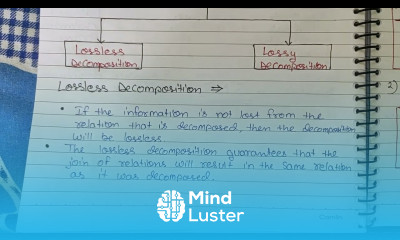 Lossless
Decomposition
Lossy
Decomposition
Lossless Decomposition ⇒
• If the information is not lost from the
relation that is decomposed, then the decomposition
will be lossless.
• The lossless decomposition guarantees that the
join of relations will result in the same relation
as it was decomposed.
2)
Mind
Luster